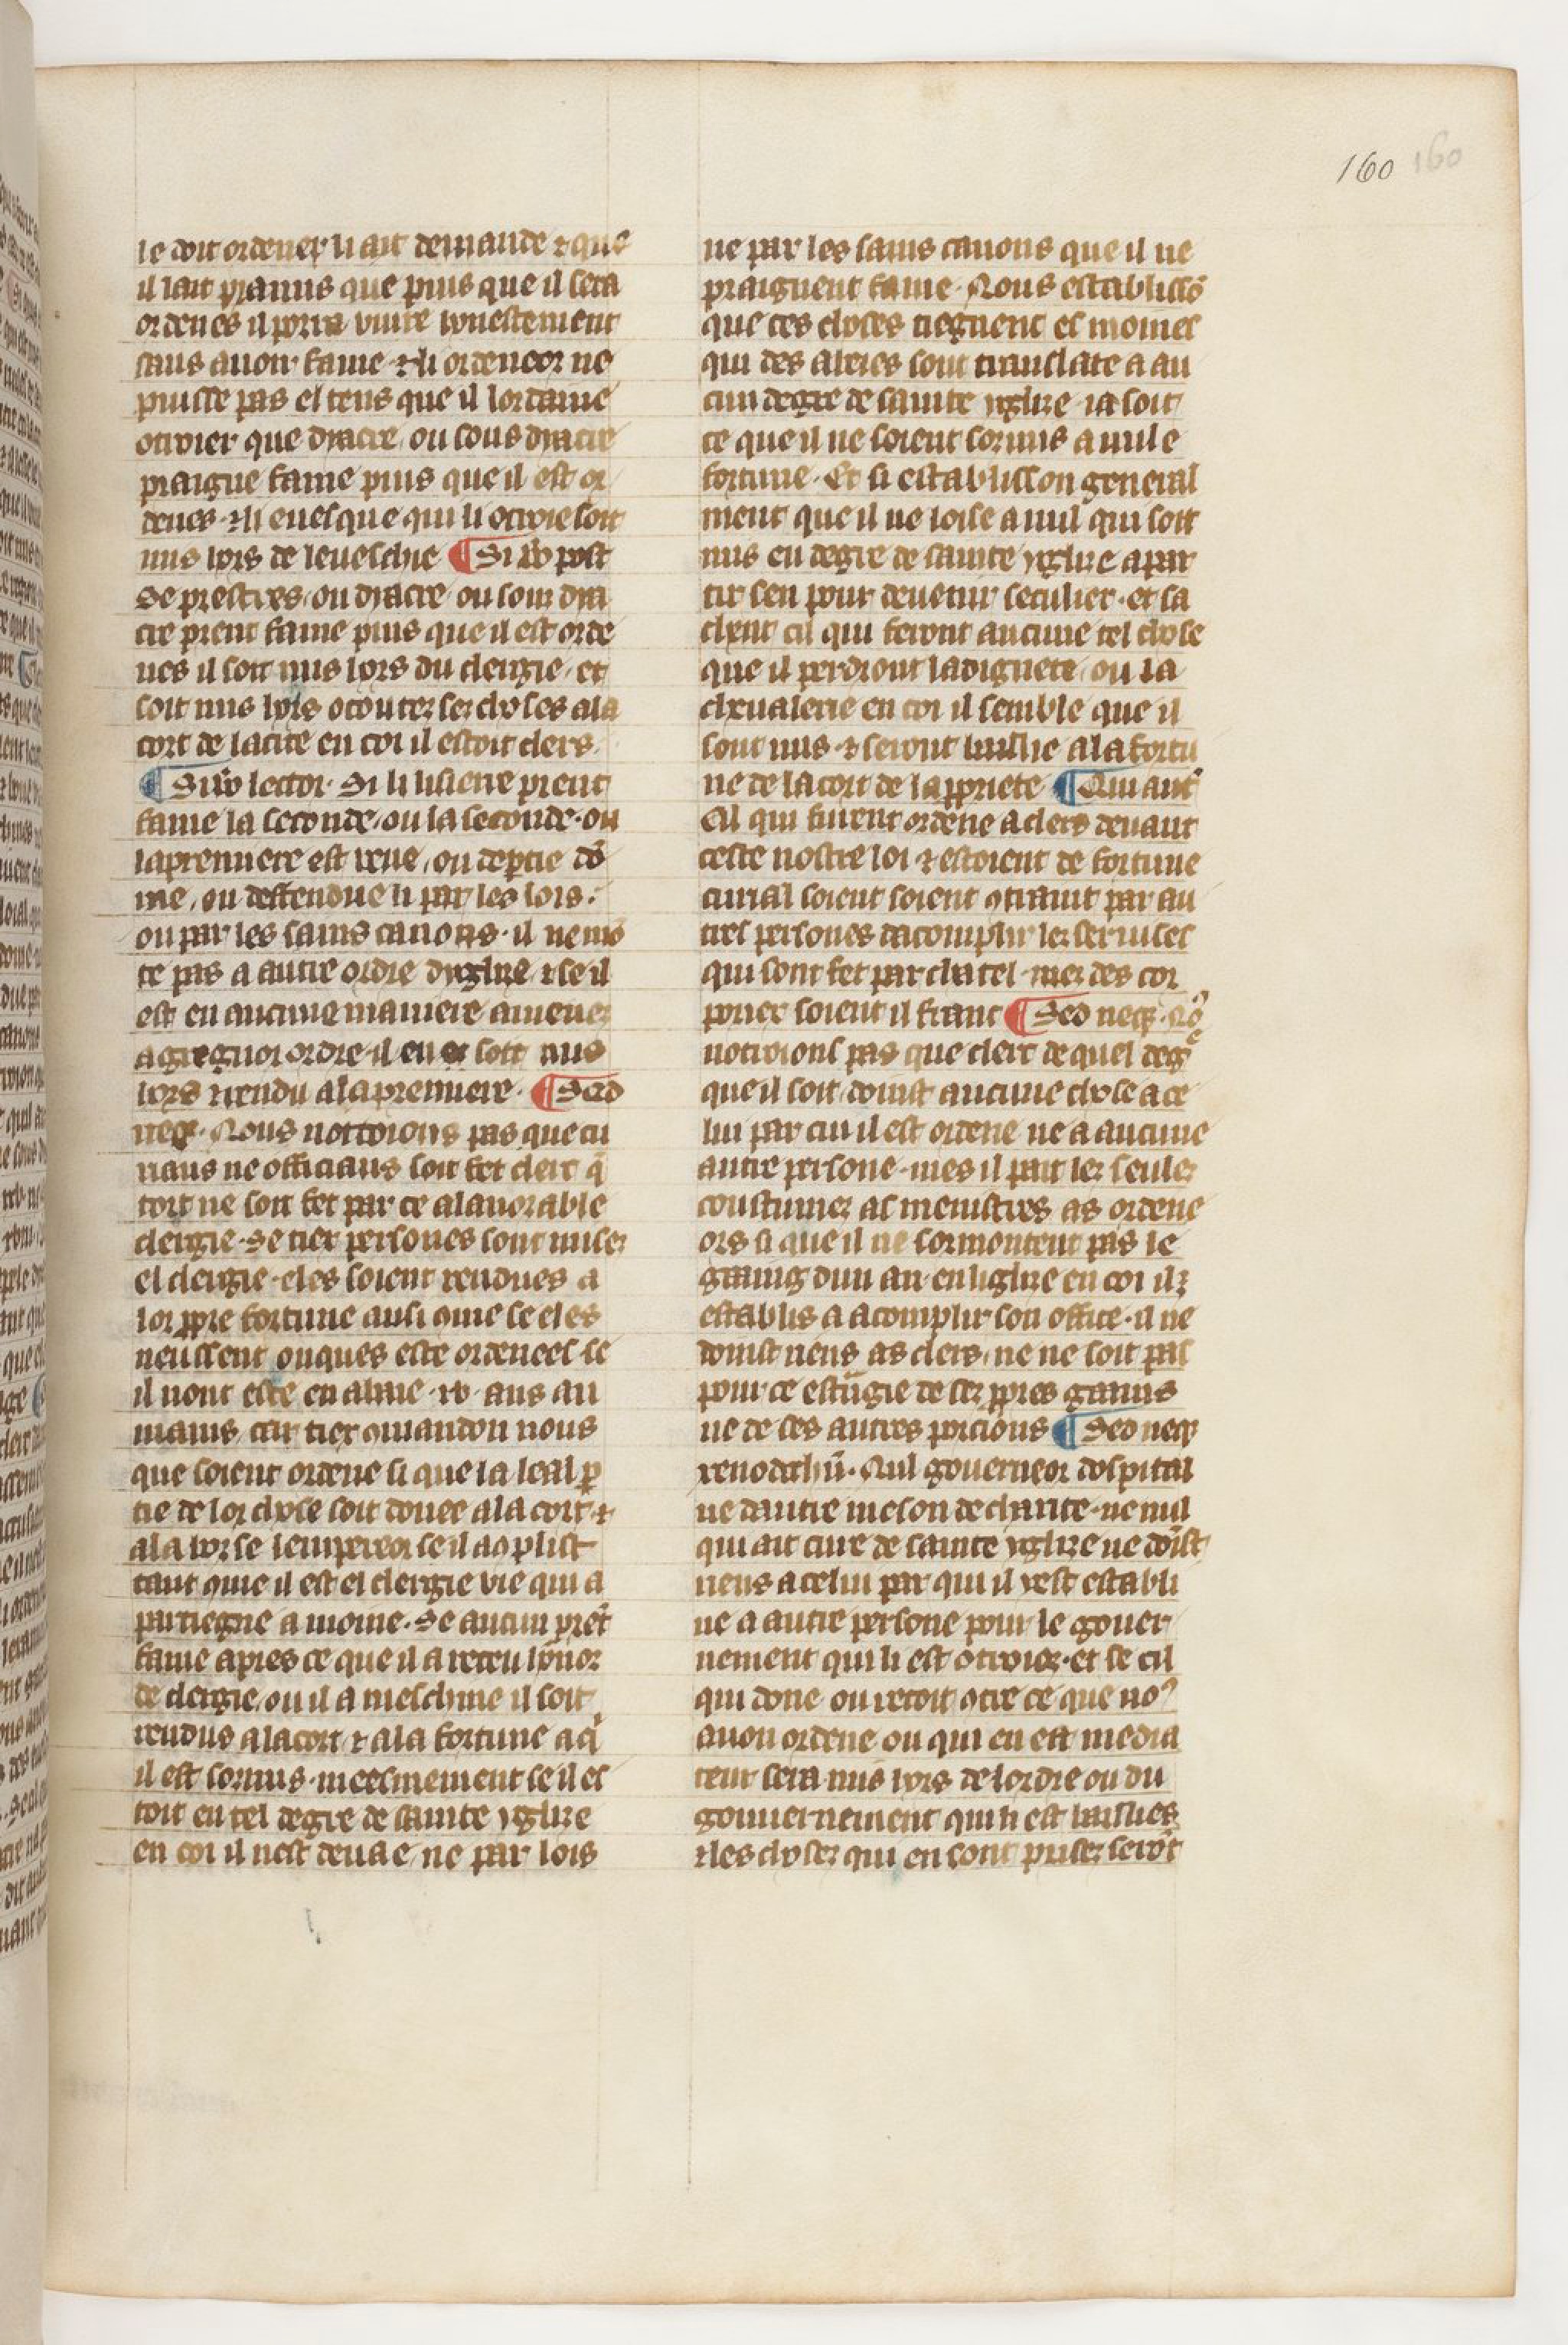 160 160
le doit ordener li ait demande ⁊ que
il lait pramis que puis que il sera
ordenes il porra viure honestement
sans auoir fame ⁊ li ordeneor ne
puisse pas el tens que il lordaine
otroier que dyacre ou sous dyacre
praigne fame puis que il est or
denes ⁊ li euesque qui li otroie soit
mis hors de leueschie ¶ Si v̾o post
Se prestres ou dyacre ou souz dya
cre prent fame puis que il est orde
nes il soit mis hors du clergie et
soit mis hors o toutez sez choses a la
cort de la cite en coi il estoit clers
¶ Si v̾o lector. Si li lisierre prent
fame la seconde ou la seconde. ou
la premiere est veue, ou deptie do̅
me, ou deffendue li par les lois.
ou par les sains canons. il ne mō
te pas a autre ordre dyglise ⁊ se il
est en aucune maniere amenez
a gregnor ordre il en soit mis
hors ⁊ rendu a la premiere. ¶ Sed
neqꝫ. Nous nottroions pas que cu
riaus ne officiaus soit fet clerc q̄
tort ne soit fet par ce a lanorable
clergie. se tiex persones sont mises
el clergie. eles soient rendues a
lor ppre fortune ausi ꝯme se eles
neussent onques este ordenees se
il nont este en abaie .xv. ans au
mains, car tiex ꝯmandon nous
que soient ordene si que la leal p̱
tie de lor chose soit donee a la cort ⁊
a la borse lempereor se il ao plist
tant ꝯme il est el clergie vie qui a
partiegne a moine. Se aucun prēt
fame apres ce que il a receu lonor
de clergie, ou il a meschine il soit
rendus a la cort ⁊ a la fortune a q̇
il est sozmis. meesmement se il es
toit en tel degre de sainte yglise
en coi il nest deuae, ne par lois
ne par les sains canons que il ne
praignent fame. Nous establissō
que ces choses tiegnent es moines
qui des abeies sont translate a au
cun degre de sainte yglise ia soit
ce que il ne soient sozmis a nule
fortune. Et si establisson general
ment que il ne loise a nul qui soit
mis en degre de sainte yglise a par
tir sen pour deuenir seculier. et sa
chent cil qui feront aucune tel chose
que il perdront la dignete, ou la
cheualerie en coi il semble que il
sont mis ⁊ seront baillie a la fortu
ne de la cort de la ppriete ¶ Qui aut̄
Cil qui furent ordene a clers deuant
ceste nostre loi ⁊ estoient de fortune
curial soient soient ꝯtraint par au
tres persones dacomplir les seruises
qui sont fet par chatel. mes des cor
porex soient il franc ¶ Sed neqꝫ. Noꝰ
notroions pas que clerc de quel degͤ
que il soit, doinst aucune chose a ce
lui par cui il est ordene ne a aucune
autre persone. mes il pait lez seulez
coustumez as menistres as ordene
ors si que il ne sormontent pas le
gaaing dun an. en liglise en coi il ⁊
establis a acomplir son office. il ne
doinst riens as clers, ne ne soit pas
pour ce estrāgie de sez ppres gaains
ne de ces autres porcions ¶ Sed neqꝫ
xenodochiū. Nul gouerneor dospital
ne dautre meson de charite. ne nul
qui ait cure de sainte yglize ne doīst
riens a celui par qui il yest establi
ne a autre persone pour le gouer
nement qui li est otroiez. et se cil
qui done ou recoit ꝯtre ce que noꝰ
auon ordene ou qui en est media
teur sera mis hors de lordre ou du
gouuernement qui li est bailliez
⁊ les chosez qui en sont prisez serōt